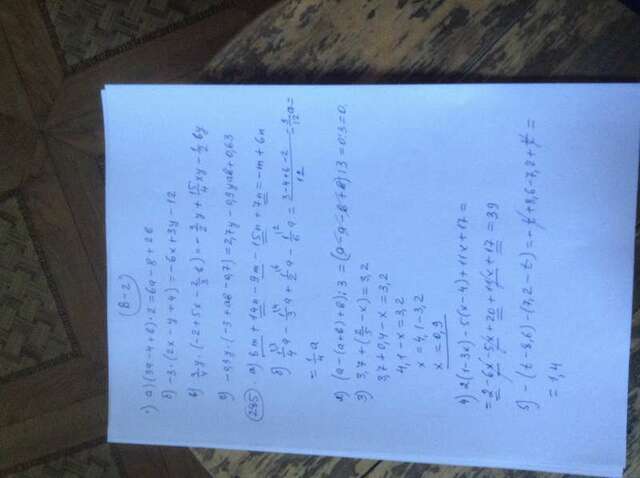 В-2
1) а) (3а-4+в)·2=6а-8+2в
б) -3·(2x-y+4)=-6x+3y-12
в) 3/4y·(-2+5x-2/3в)=-3/2y+15/4xy-1/2вy
г) -0,9y·(-3+ав-0,7)=2,7y-0,9yав+0,63
285. а) 8m+14n-9m-15n+7n=-m+6n
б) 1/4а-1/3а+1/2а-1/6а=(3-4+6-2)/12=3/12а=
=1/4а
2) (а-(а+в)+в):3=(а-а-в+в):3=0:3=0
3) 3,7+(2/5-x)=3,2
3,7+0,4-x=3,2
4,1-x=3,2
x=4,1-3,2
x=0,9
4) 2(1-3x)-5(x-4)+11x+17=
=2-6x-5x+20+11x+17=39
5) -(t-8,6)-(7,2-t)=-t+8,6-7,2+t=
=1,4